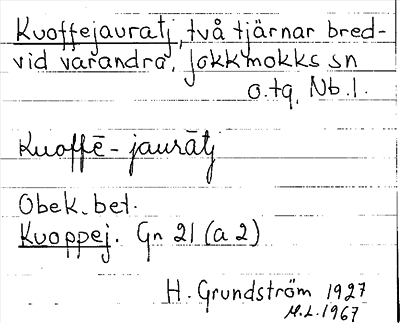 Kuoffejauratj, två tjärnar bred-
vid varandra, Jokkmokks sn
o.tg, Nb.l.
Kuoffē-jaurātj
Obek. bet.
Kuoppej. Gn 21 (a 2)
H. Grundström 1927
M.L. 1967